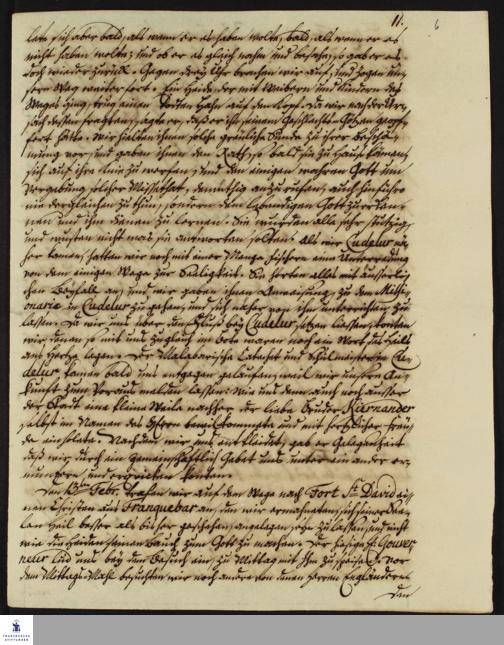 11.
6
ließ sich aber bald, als wenn er es haben wolte, bald, als wenn er es
nicht haben wolte; und ob er es gleich nahm und besahe, so gab er es
doch wieder zurück. Gegen drey Uhr brachen wir auf, und zogen un-
sern Weg weiter fort. Ein Heide, der mit Weibern und Kindern des
Weges ging, trug einen todten Hahn auf dem Kopf. Da wir nach der Ur-
sach dessen fragten, sagte er, daß er ihn seinem Geschlechts-Götzen geopf-
fert hätte. Wir hielten ihnen solche greuliche Sünde zu ihrer beschä-
mung vor, und gaben ihnen den Rath, so bald sie zu Hause kämen,
sich auf ihre Knie zu werfen, und den einigen wahren Gott um
Vergebung solcher Missethat demüthig anzurufen, auch hinführo
nie dergleichen zu thun, sondern den lebendigen Gott zu erken-
nen und ihm dienen zu lernen. Sie wurden alle sehr stutzig,
und wusten nicht was sie antworten solten. Als wir Cudelur nä-
her kamen, hatten wir noch mit einer Menge Fischern eine Unterredung
von dem einigen Wege zur Seligkeit. Sie hörten alles mit äusserli-
chen Beyfall an, und wir gaben ihnen Anweisung, zu dem Missi-
onario in Cudelur zu gehen, und sich näher von ihm unterrichten zu
lassen. Da wir uns über den Fluß bey Cudelur setzen liessen, konten
wir denen so mit uns zugleich im Bote waren noch ein Wort des Heils
ans Hertze legen. Der Malabarische Catechet und Schulmeister in Cu-
delur kamen bald uns entgegen gelaufen, weil wir unsere An-
kunft zum Voraus melden lassen: Wie uns denn auch noch ausser
der Stadt eine kleine Weile nachher der liebe Bruder Kiernander
selbst im Namen des HErrn bewillkommete und mit hertzlicher Freu-
de einholete. Nachdem wir uns entkleidet, gab er Gelegenheit
daß wir durch ein gemeinschaftlich Gebet uns unter einander er-
muntern und erquicken konten.
Den 13ten Febr. trafen wir auf dem Wege nach Fort St. David ei-
nen Christen aus Franquebar an, den wir ermahneten, sich seiner See-
len Heil besser als bisher geschehen, angelegen seyn zu lassen, und nicht
wie die Heiden seinen Bauch zum Gott zu machen. Der hiesige H. Gouver-
neur lud uns bey dem Besuch ein, zu Mittag mit Ihm zu speisen. Vor
dem Mittags-Mahl besuchten wir noch andre von denen Herren Engländern
den
FRANCKESCHE STIFTUNGEN